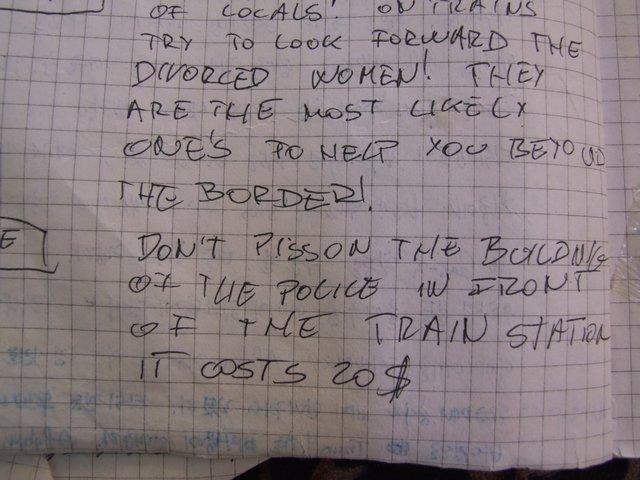 OF LOCALS! ON TRAINS
TRY TO LOOK FORWARD THE
DIVORCED WOMEN! THEY
ARE THE MOST LIKELY
ONE'S TO HELP YOU BEYOND
THE BORDER!
E
DON'T PISS ON THE BUILDING
OF THE POLICE IN FRONT
OF THE TRAIN STATION
IT COSTS 20$